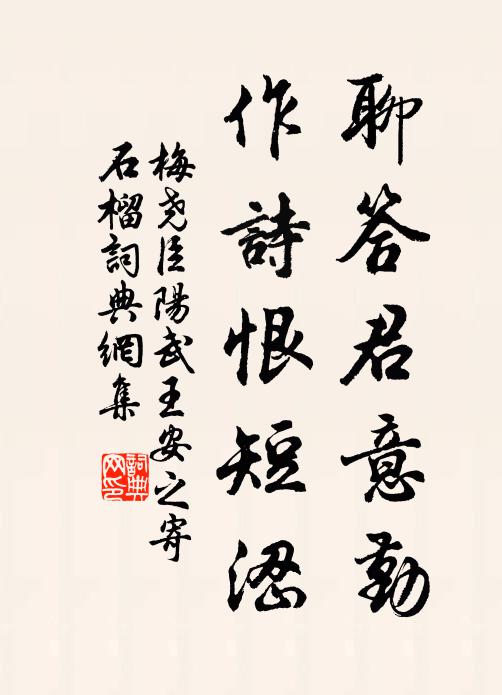 聊答君意勤
作詩恨短涩
梅堯臣陽武王安之寄
石榴詞典網集
詞典
网印